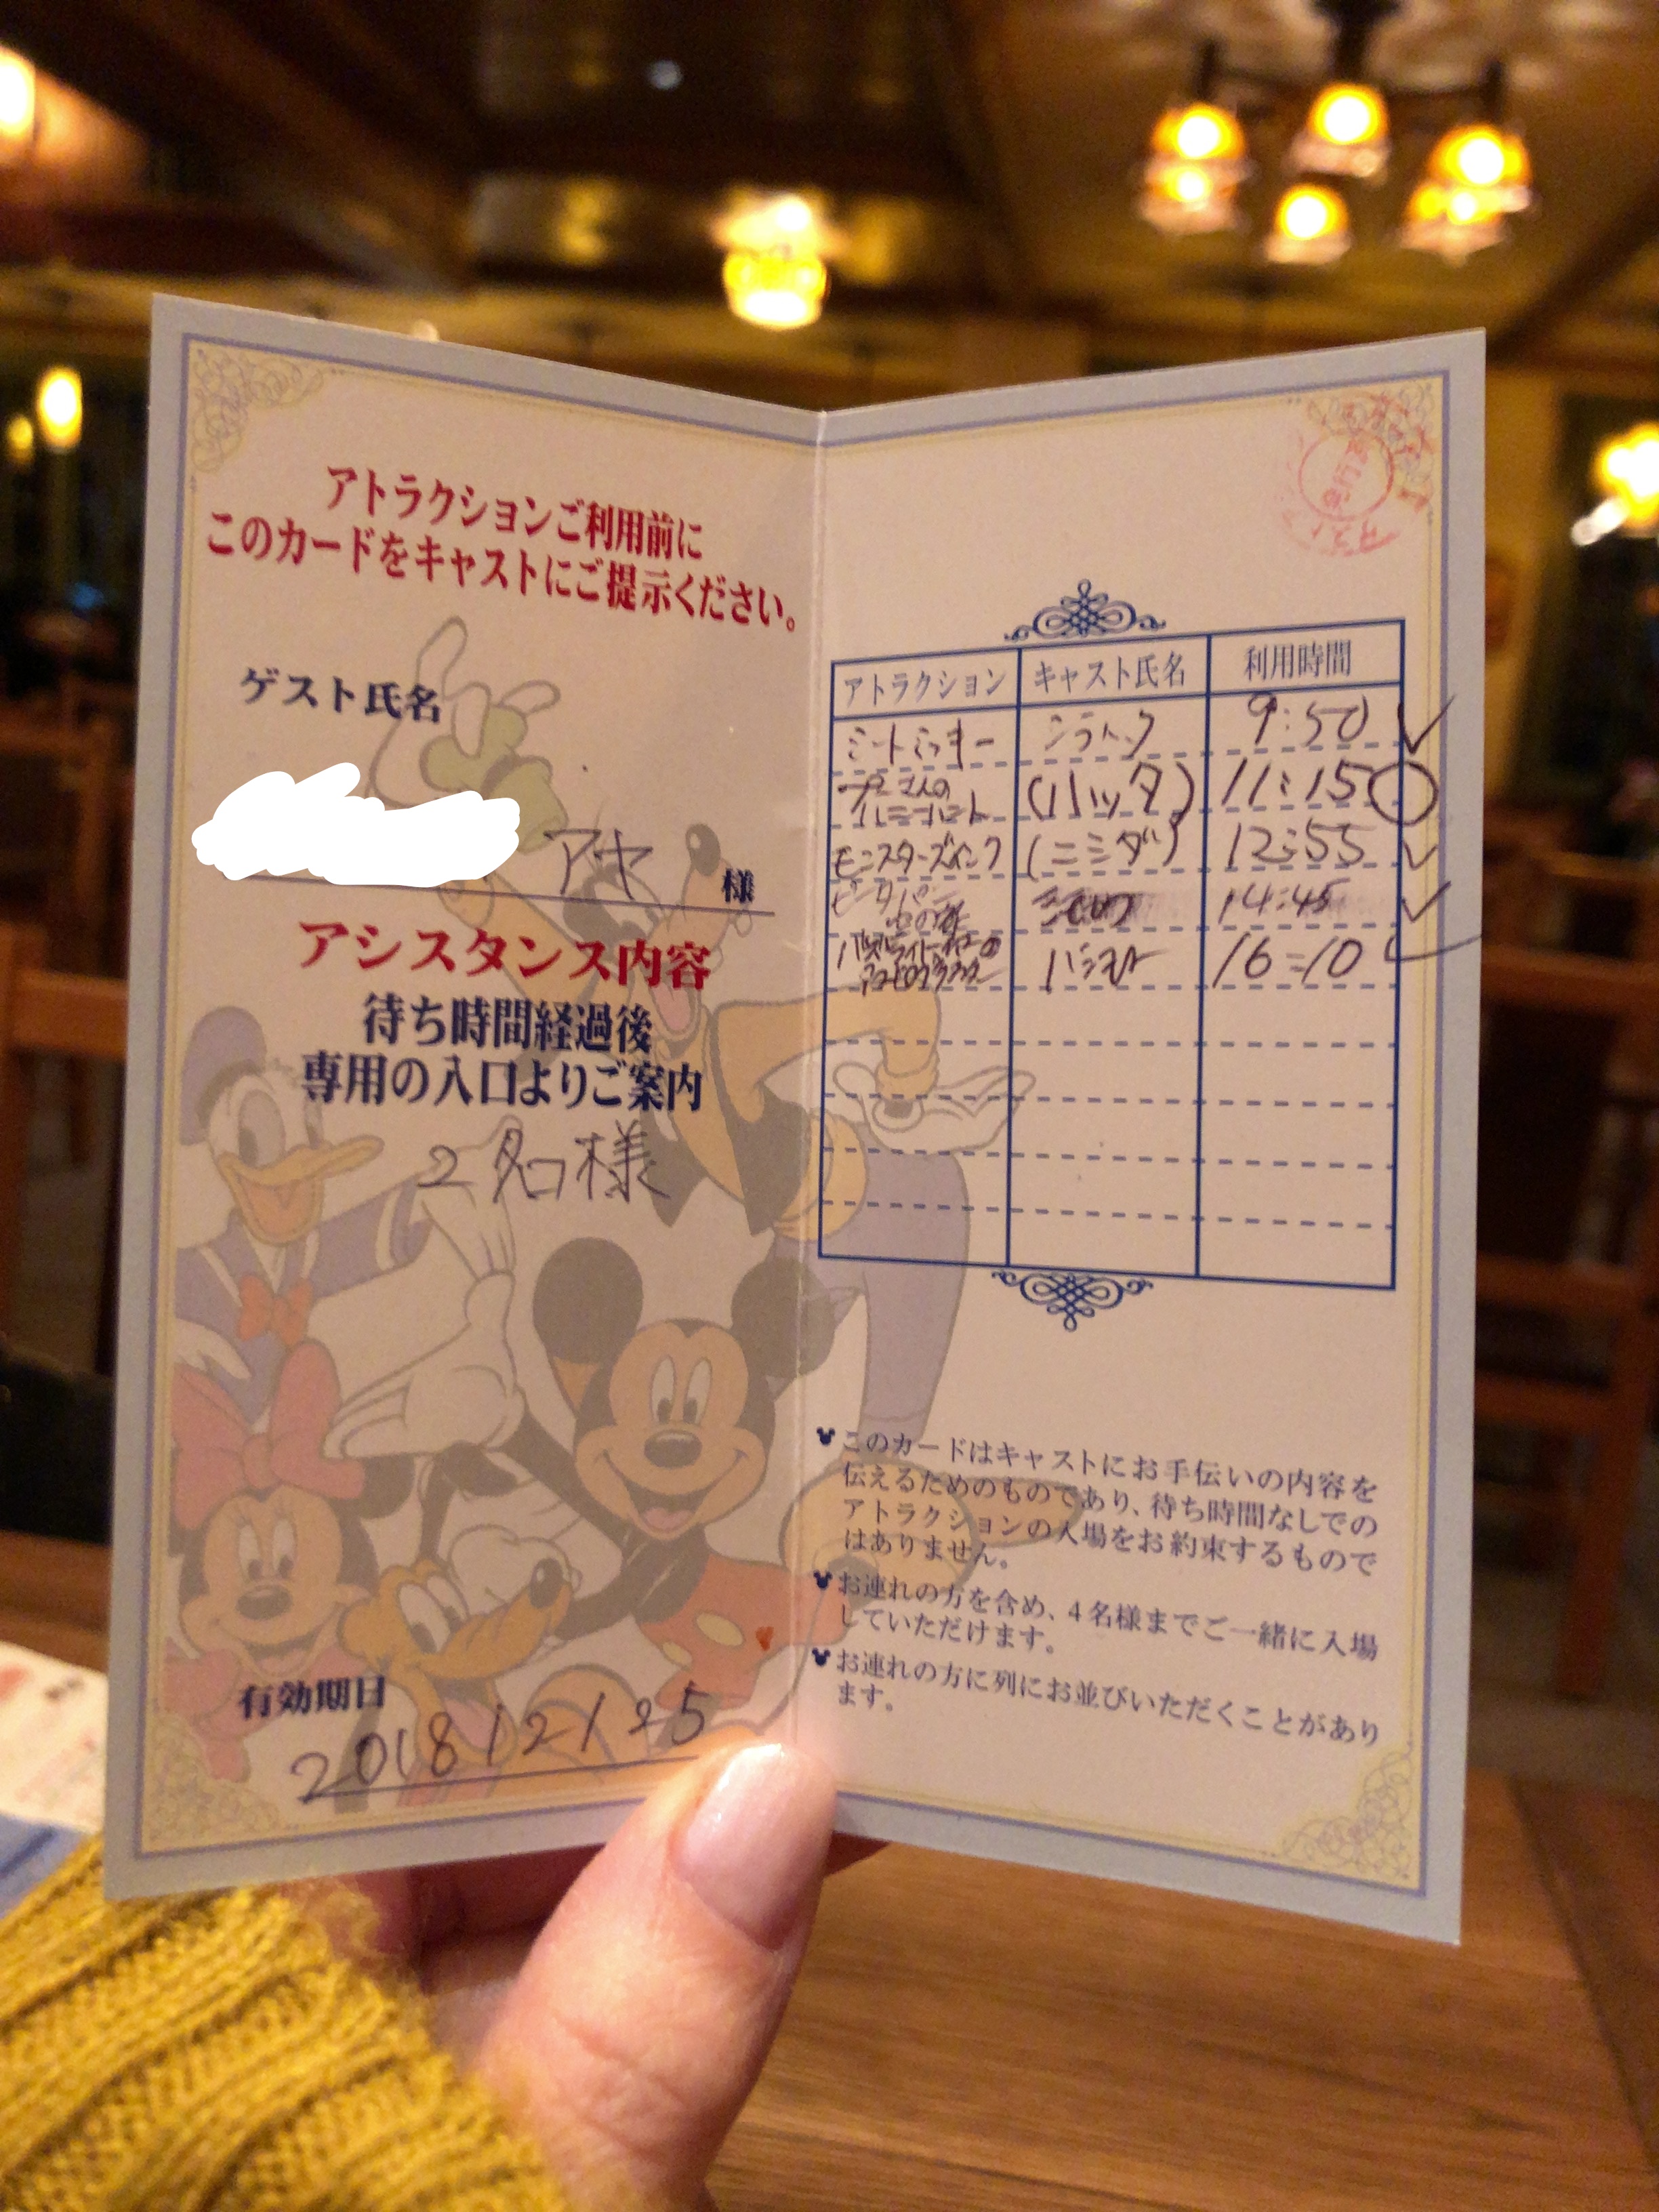 アトラクションご利用前に
このカードをキャストにご提示ください。
ゲスト氏名
アヤ 様
アシスタンス内容
待ち時間経過後
専用の入口よりご案内
2名様
有効期日
2018 12/25
アトラクション キャスト氏名 利用時間
ミートミッキー 9:50
プーさんの
ハニーハント (ハッタ) 11:15
モンスターズインク (ニシダ) 12:55
ピーターパン
空の旅 14:45
バズライトイヤーの
アストロブラスター 16:10
このカードはキャストにお手伝いの内容を
伝えるためのものであり、待ち時間なしでの
アトラクションの入場をお約束するもので
はありません。
お連れの方を含め、4名様までご一緒に入場
していただけます。
お連れの方に列にお並びいただくことがあり
ます。